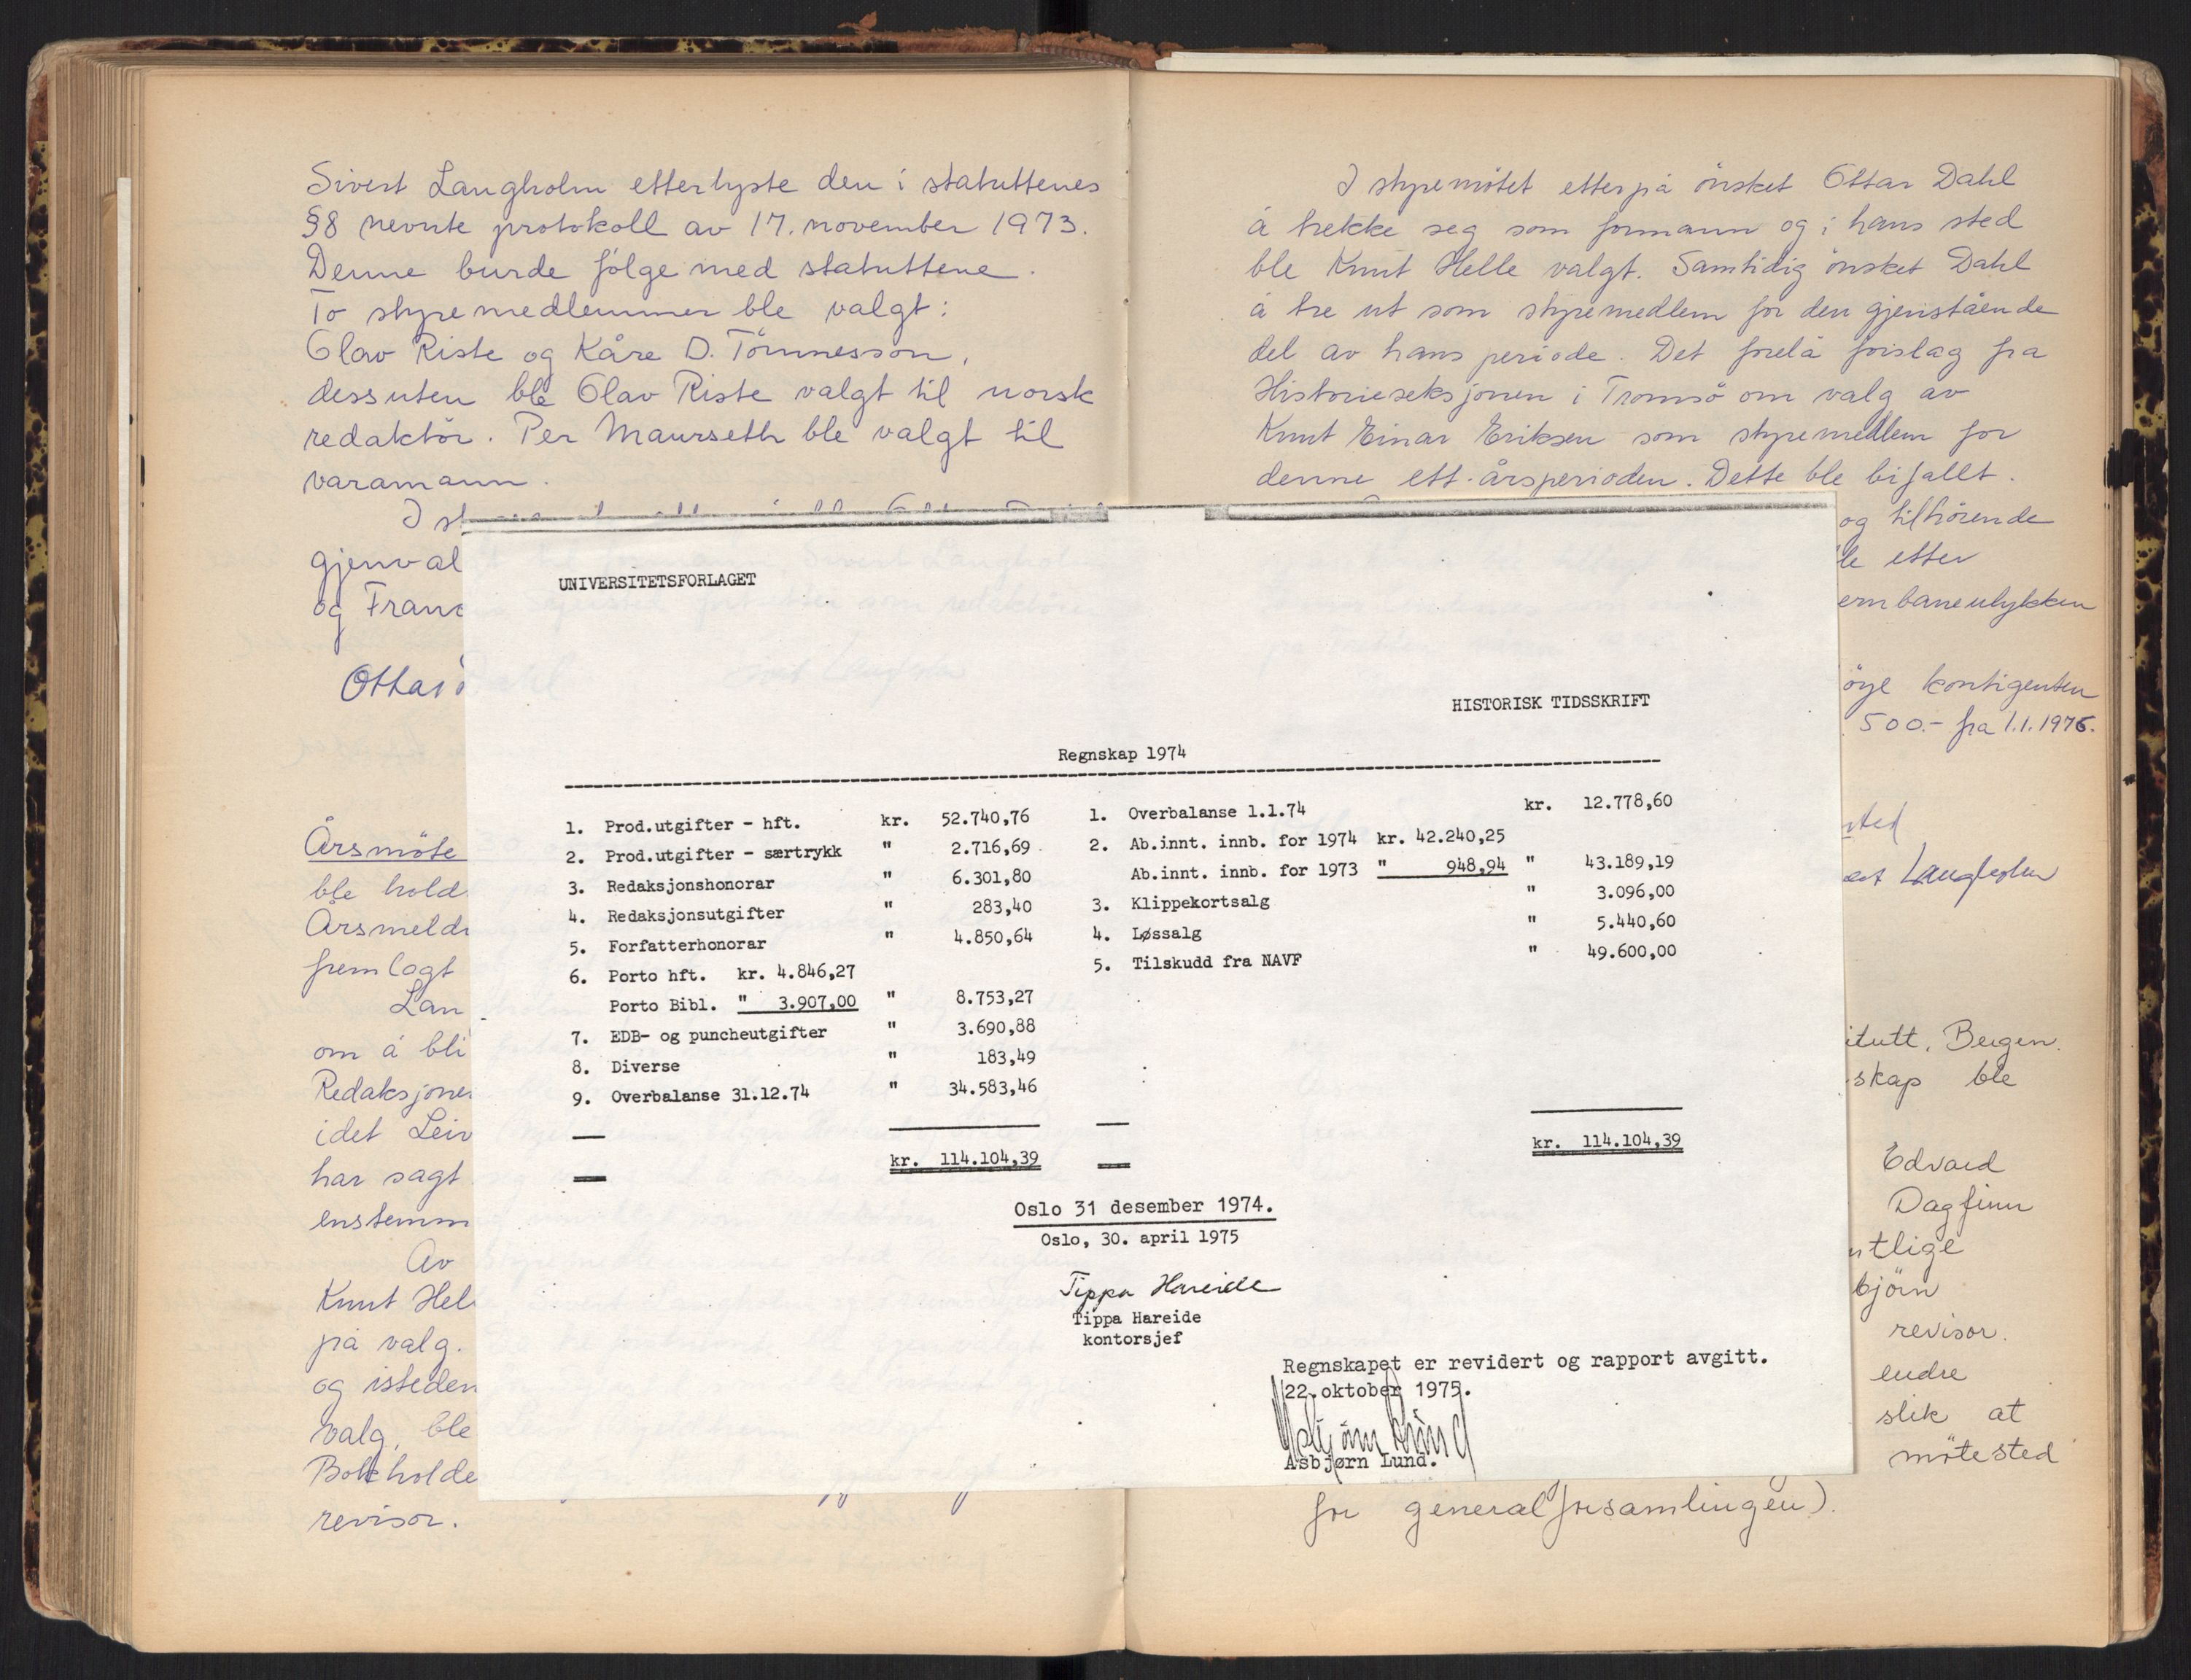 Sivert Langholm etterlyste den i statuttenes
§8 nevnte protokoll av 17. november 1973.
Denne burde følge med statuttene.
To styremedlemmer ble valgt:
Olav Riste og Kåre D. Tönnesson,
dessuten ble Olav Riste valgt til norsk
redaktör. Per Maurseth ble valgt til
varamann.
I st
gjenval
og Franc
Ottar
Årsmöte
ble hold
Årsmeld
fremlagt
Lan
om å bli
Redaksjone
idet Leiv
har sagt
enstemm
Av
Knut Hel
på valg.
og isteden
valg, ble
Bokholde
revisor.
I styremötet etterpå önsket Ottar Dahl
å trekke seg som formann og i hans sted
ble Knut Helle valgt. Samtidig önsket Dahl
å tre ut som styremedlem for den gjenstående
del av hans periode. Det forelå forslag fra
Historieseksjonen i Tromsö om valg av
Knut Einar Eriksen som styremedlem for
denne ett-årsperioden. Dette ble bifallt.
og tilhörende
le etter
ernbaneulykken
öye kontigenten
500.- fra 1.1.1976.
sted
Langholm
itutt, Bergen.
skap ble
Edvard
Dagfinn
ntlige
björn
revisor.
endre
slik at
mötested
for generalforsamlingen).
UNIVERSITETSFORLAGET
HISTORISK TIDSSKRIFT
Regnskap 1974
1. Prod.utgifter - hft. kr. 52.740,76
2. Prod.utgifter - særtrykk " 2.716,69
3. Redaksjonshonorar " 6.301,80
4. Redaksjonsutgifter " 283,40
5. Forfatterhonorar " 4.850,64
6. Porto hft. kr. 4.846,27
Porto Bibl. " 3.907,00 " 8.753,27
7. EDB- og puncheutgifter " 3.690,88
8. Diverse " 183,49
9. Overbalanse 31.12.74 " 34.583,46
kr. 114.104,39
1. Overbalanse 1.1.74 kr. 12.778,60
2. Ab.innt. innb. for 1974 kr. 42.240,25
Ab.innt. innb. for 1973 " 948,94 " 43.189,19
3. Klippekortsalg " 3.096,00
4. Løssalg " 5.440,60
5. Tilskudd fra NAVF " 49.600,00
kr. 114.104,39
Oslo 31 desember 1974.
Oslo, 30. april 1975
Tippa Hareide
Tippa Hareide
kontorsjef
Regnskapet er revidert og rapport avgitt.
22.oktober 1975.
Asbjørn Lund
Asbjørn Lund.